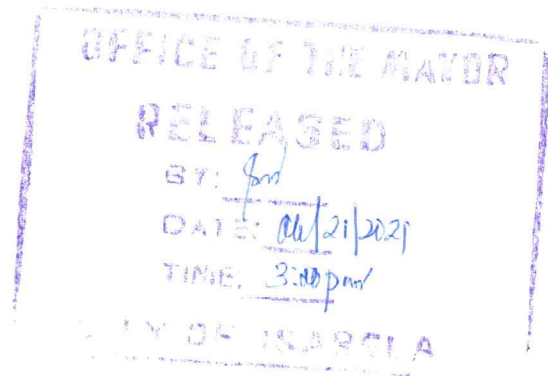 OFFICE OF THE MAYOR
RELEASED
BY:
DATE: 21/2021
TIME: 3:00pm
CITY OF ISABELA